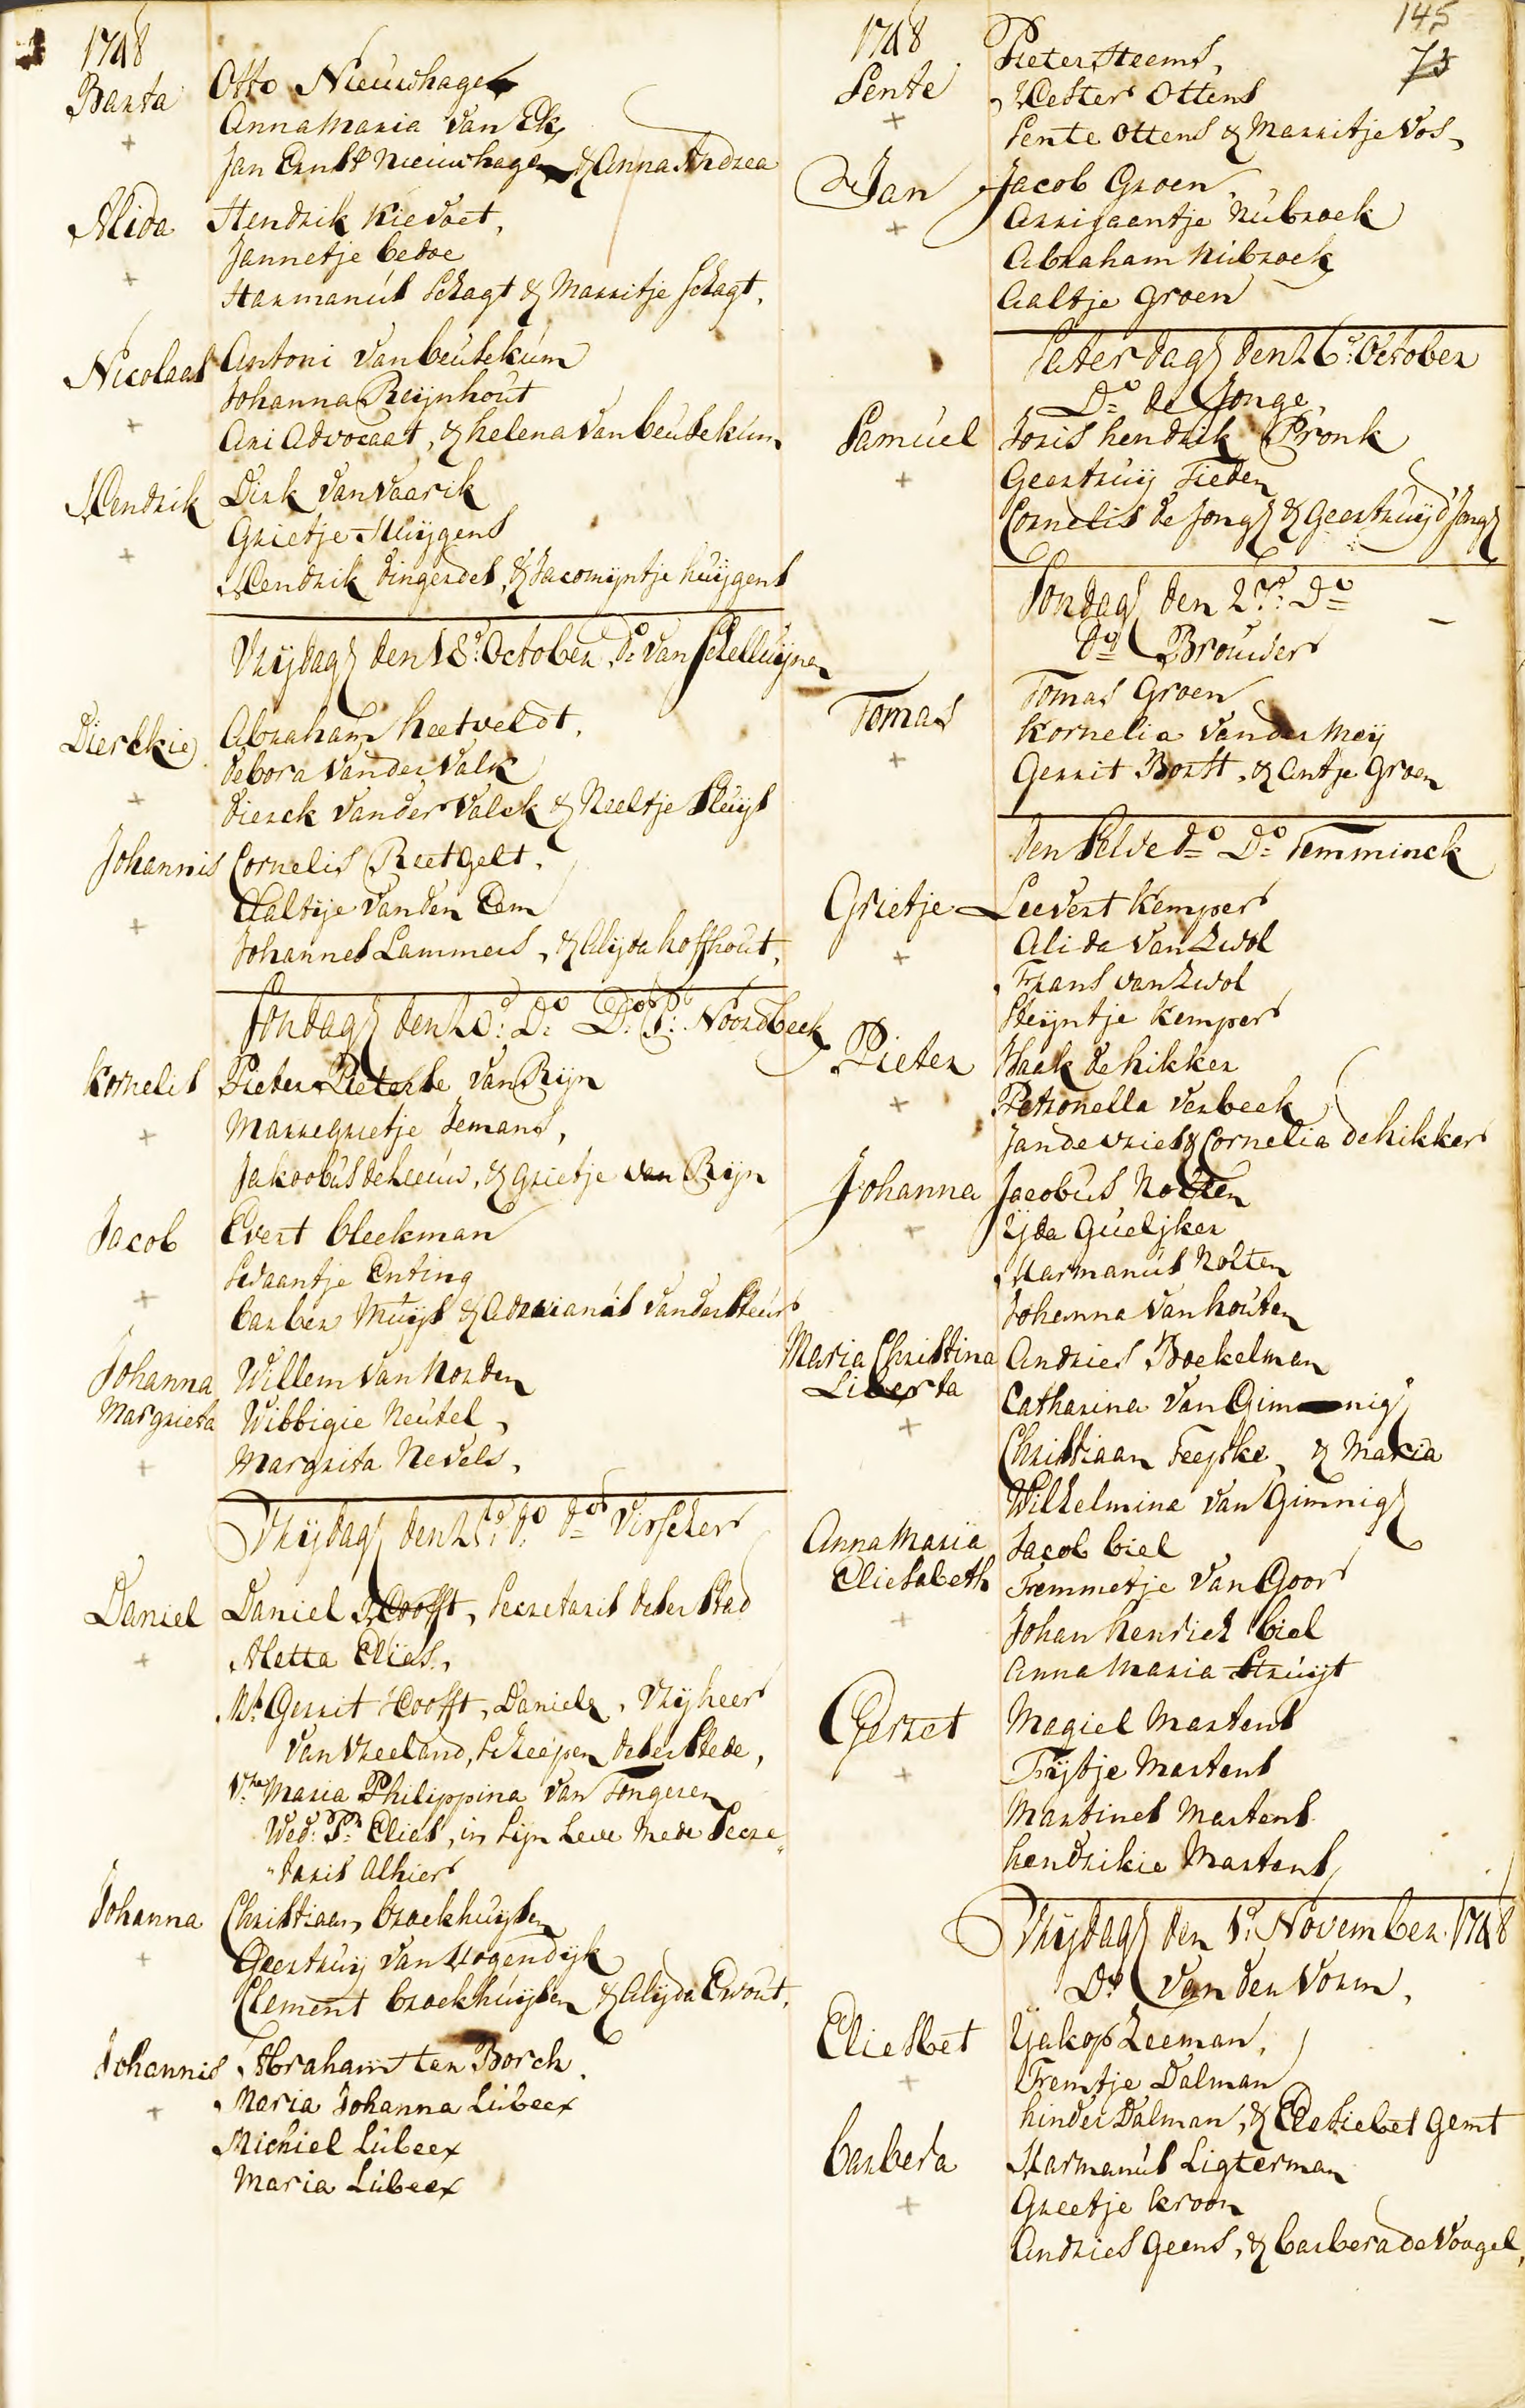 1748
Barta
Otto Nieuwhagen
Anna Maria van Ek,
Jan Ernst Nieuwhagen & Anna Andrea
Alida
Hendrik Kievoet,
Jannetje bedoe
Harmanús Schagt & Marritje Schagt,
Nicolaas
Antoni van beúsekúm
Johanna Reijnhout
Ari Advocaat, & helena van beúsekúm
Hendrik
Dirk van Vaarik
Grietje Huijgens
Hendrik dingerdes, & Jacomijntje huijgens
Vrijdag den 18d: October, do van Schelluijnen
Dierckie
Abraham heetveldt,
debora vander Valk
dierck vander Valck & Neeltje Sluijs
Johannis
Cornelis Reetgelt,
Aaltije van den Eem
Johannes Lammers, & Alijda hoffhout,
Sondag den 20d: Do Do: P: Noordbeek
Kornelis
Pieter Pieterse van Rijn
Marregrietje Jemans,
Jakoobús de Leeuw, & grietje van Rijn
Jacob
Evert bleekman
Sedaantje Enting
barber Múijs & Adrianús vander Steúr
Johanna
Margrieta
Willem van Norden
Wibbigie Neútel,
Margrita Nevels,
Vrijdag den 25d: do do Visscher
Daniel
Daniel Hoofft, Secretaris deser Stad
Aletta Elias,
Mr Gerrit Hoofft, Daniels, Vrijheer
van Vreeland, Scheepen deser Stede,
Vre Maria Philippina van Tongeren
Wed: Pr: Elias, in Sijn Leve mede Secre„
„taris alhier
Johanna
Christiaan broekhuijsen
Geertruij van Hogendijk
Clement broekhúijsen & Alijda Ewout,
Johannis
Abraham ten Borch,
Maria Johanna Lúbeex
Michiel Lúbeex
Maria Lúbeex
145
73
1748
Sente
Pieter Steems,
Hester Ottens
Sente Ottens & Marritje Vos,
Jan
Jacob Groen,
Arrijaantje Núbroek
Abraham Núbroek
Aaltje groen
Saterdag den 26d: October
Do de Jonge,
Samúel
Joris hendrik Pronk
Geertruij Fieden
Cornelis de Jong & Geertruij d'Jong
Sondag den 27d: Do
do Brouwer
Tomas
Tomas Groen
Kornelia vander Meij
Gerrit Borst, & Antje Groen
den Selve do Do Temminck
Grietje
Leevert Kemper
Alida van Zwol
Frans van Zwol
Steijntje Kemper
Pieter
Isaak de kikker
Petronella verbeek
Jan de vries & Cornelia de kikker
Johanna
Jacobus Nolten
Yda Gúelijker
Harmanús Nolten
Johanna van houten
Maria Christina
Liberta
Andries Boekelman
Catharina van Gimnig
Christiaan Feyske, & Maria
Wilhelmina van Gimnig
Anna Maria
Eliesabeth
Jacob biel
Fremmetje van Goor
Johan henrich biel
Anna Maria Struijt
Gerret
Magiel Martens
Trijtje Martens
Martines Martens
hendrikie Martens,
Vrijdag den 1d: November 1748
Do van der Vorm,
Eliesbet
Yjakop Zeeman,
Fremtje Dalman
hinder Dalman, & Elesiebet gemt
barbera
Harmanús Ligterman
Greetje kroon
Andries Geens, & barbera de Voogel,